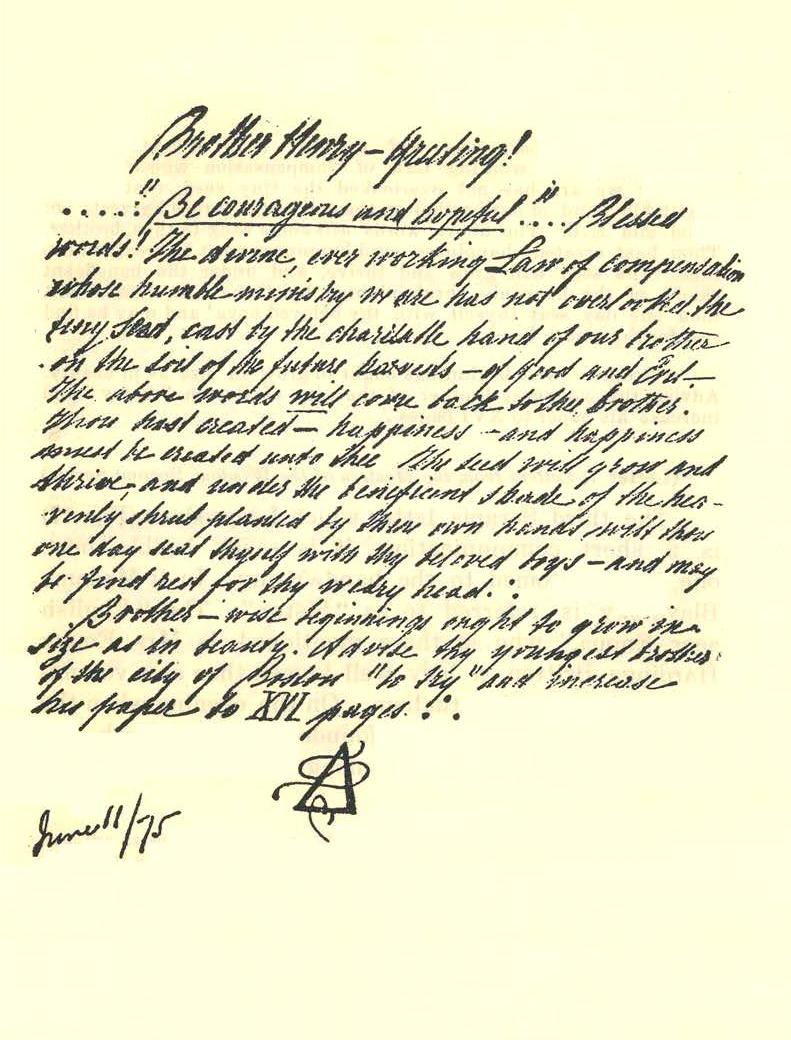 Brother Henry – Greeting!
. . . . : "Be courageous and hopeful" . . . . Blessed
words! The divine, ever working Law of compensation
whose humble ministry we are has not overlooked the
tiny seed, cast by the charitable hand of our brother
on the soil of the future harvens – of Good and Evil. –
The above words will come back to thee brother.
Thou hast created – happiness – and happiness
must be created unto thee. The seed will grow and
thrive, and under the beneficient shade of the hea-
venly shrub planted by thine own hands will thou
one day seat thyself with thy beloved boys – and may
be find rest for thy weary head. :
Brother – wise beginnings ought to grow in
size as in beauty. Advise thy youngest brother
of the city of Boston "to try" and increase
his paper to XVI pages. . : .
June 11/75